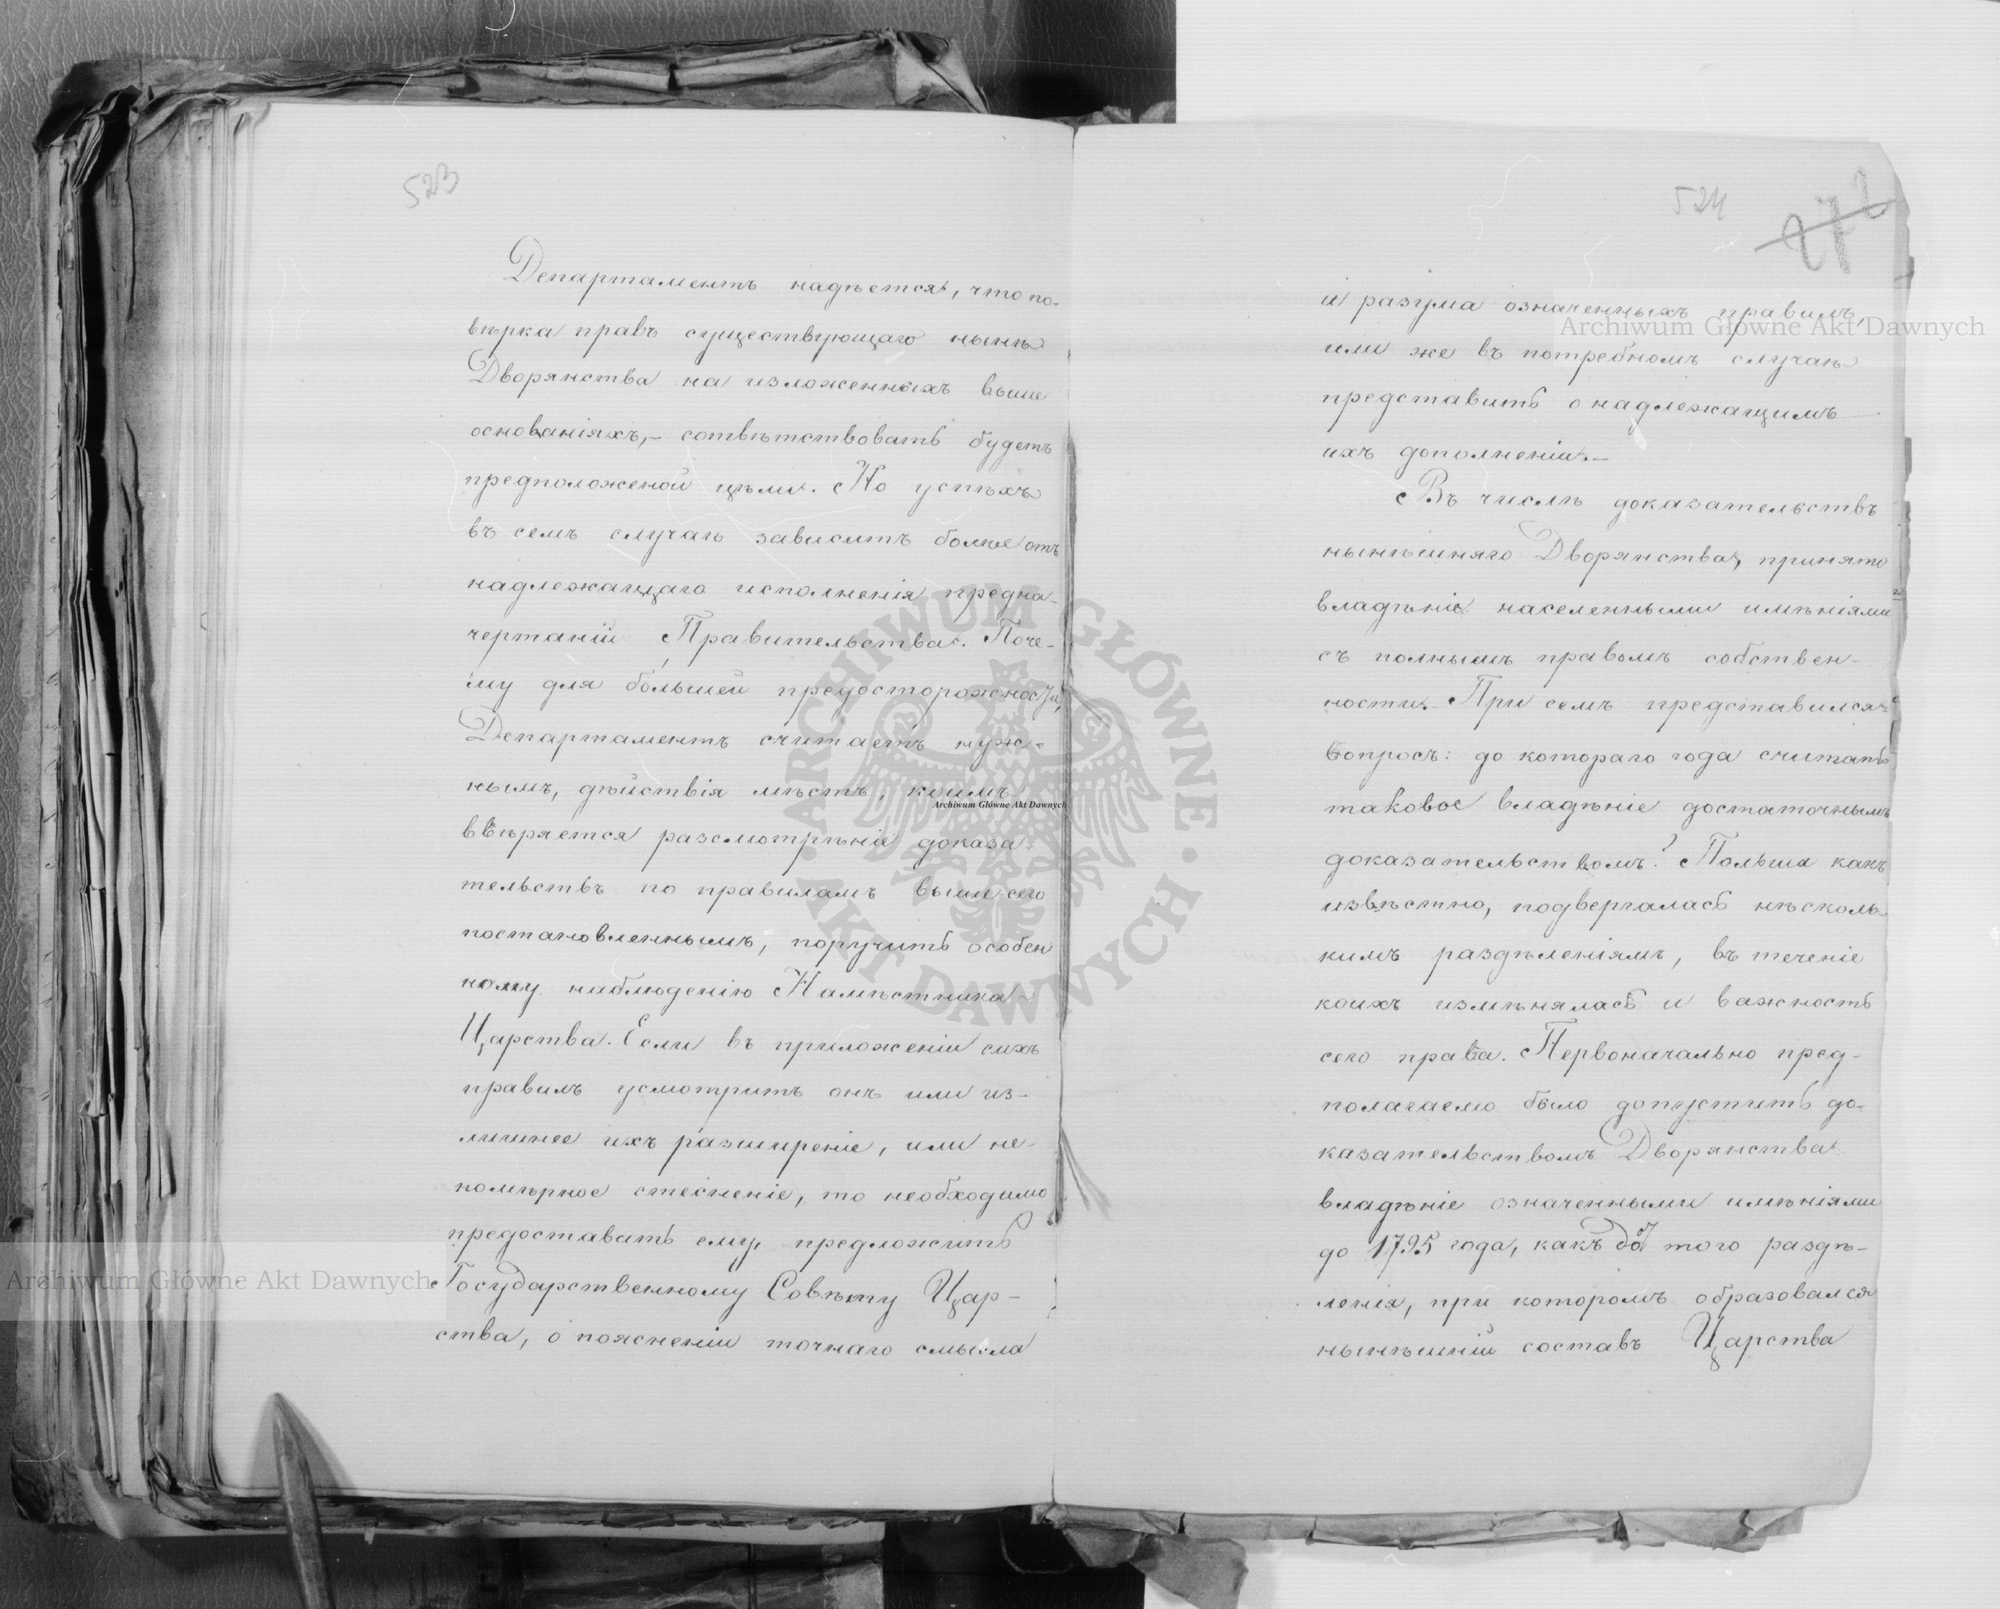 523
Департаментъ надѣется, что по-
вѣрка правъ существующаго нынѣ
Дворянства на изложенныхъ выше
основаніяхъ, - сотвѣтствовать будетъ
предположеной цѣли. Но успѣхъ
въ семъ случаѣ зависитъ болѣе отъ
надлежащаго исполненія предна-
чертаній Правительства. Поче-
му для большей предосторожности,
Департаментъ считаетъ нуж-
нымъ, дѣйствія мѣстъ, коимъ
ввѣряется разсмотрѣніе доказа-
тельствъ по правиламъ выше сего
постановленнымъ, поручить особен
ному наблюденію Намѣстника
Царства. Если въ приложеніи сихъ
правилъ усмотритъ онъ или из-
лишнее ихъ разширеніе, или не-
помѣрное стесненіе, то необходимо
предоставить ему, предложить
Государственному Совѣту Цар-
ства, о поясненіи точнаго смысла
524
272
и разума означенныхъ правилъ,
или же въ потребномъ случаѣ
представить о надлежащимъ
ихъ дополненіи. -
Въ числѣ доказательствъ
нынѣшняго Дворянства, принято
владѣніе населенными имѣніями
съ полнымъ правомъ собствен-
ности. При семъ представился
вопросъ: до котораго года считать
таковое владѣніе достаточнымъ
доказательствомъ? Польша какъ
извѣстно, подвергалась нѣсколь-
кимъ раздѣленіямъ, въ теченіе
коихъ измѣнялась и важность
сего права. Первоначально пред-
полагаемо было допустить до-
казательствомъ Дворянства
владѣніе означенными имѣніями
до 1795 года, какъ до того раздѣ-
ленія, при которомъ образовался
нынѣшній составъ Царства
Archiwum Główne Akt Dawnych
Archiwum Główne Akt Dawnych
Archiwum Główne Akt Dawnych
ARCHIWUM GŁÓWNE AKT DAWNYCH